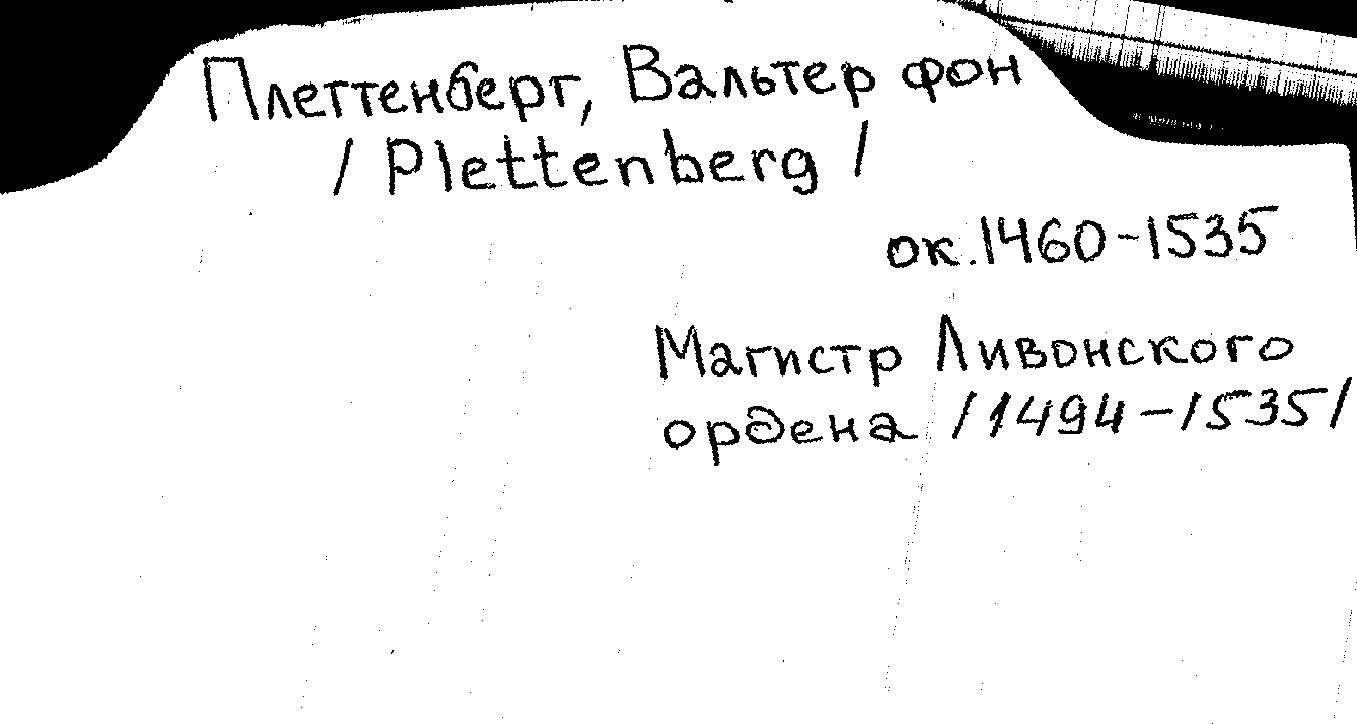 Плеттенберг, Вальтер фон
/ Plettenberg /
ок. 1460-1535
Магистр Ливонского
ордена /1494-1535/